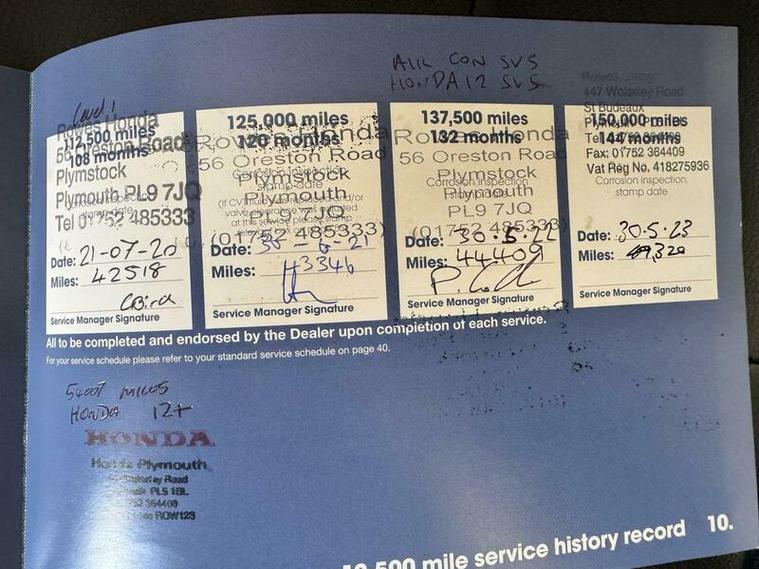 AIR CON SVS
HONDA 12 SVS
Level 1
Rowes Honda
112,500 miles
108 months
56 Oreston Road
Plymstock
Plymouth PL9 7JQ
Tel 01752 485333
Date: 21-07-20
Miles: 42518
Service Manager Signature
125,000 miles
Rowes Honda
120 months
56 Oreston Road
Plymstock
Corrosion inspection
stamp date
Plymouth
PL9 7JQ
(01752 485333)
Date: 30-6-21
Miles: 43346
Service Manager Signature
137,500 miles
Rowes Honda
132 months
56 Oreston Road
Plymstock
Corrosion inspection
Plymouth
PL9 7JQ
(01752 485333)
Date: 30.5.22
Miles: 44409
Service Manager Signature
447 Wolseley Road
St Budeaux
150,000 miles
144 months
Fax: 01752 364409
Vat Reg No. 418275936
Corrosion inspection,
stamp date
Date: 30.5.23
Miles:
Service Manager Signature
All to be completed and endorsed by the Dealer upon completion of each service.
For your service schedule please refer to your standard service schedule on page 40.
54007 MILES
HONDA 12+
HONDA
Honda Plymouth
Road
PL5 1BL
ROW123
500 mile service history record 10.